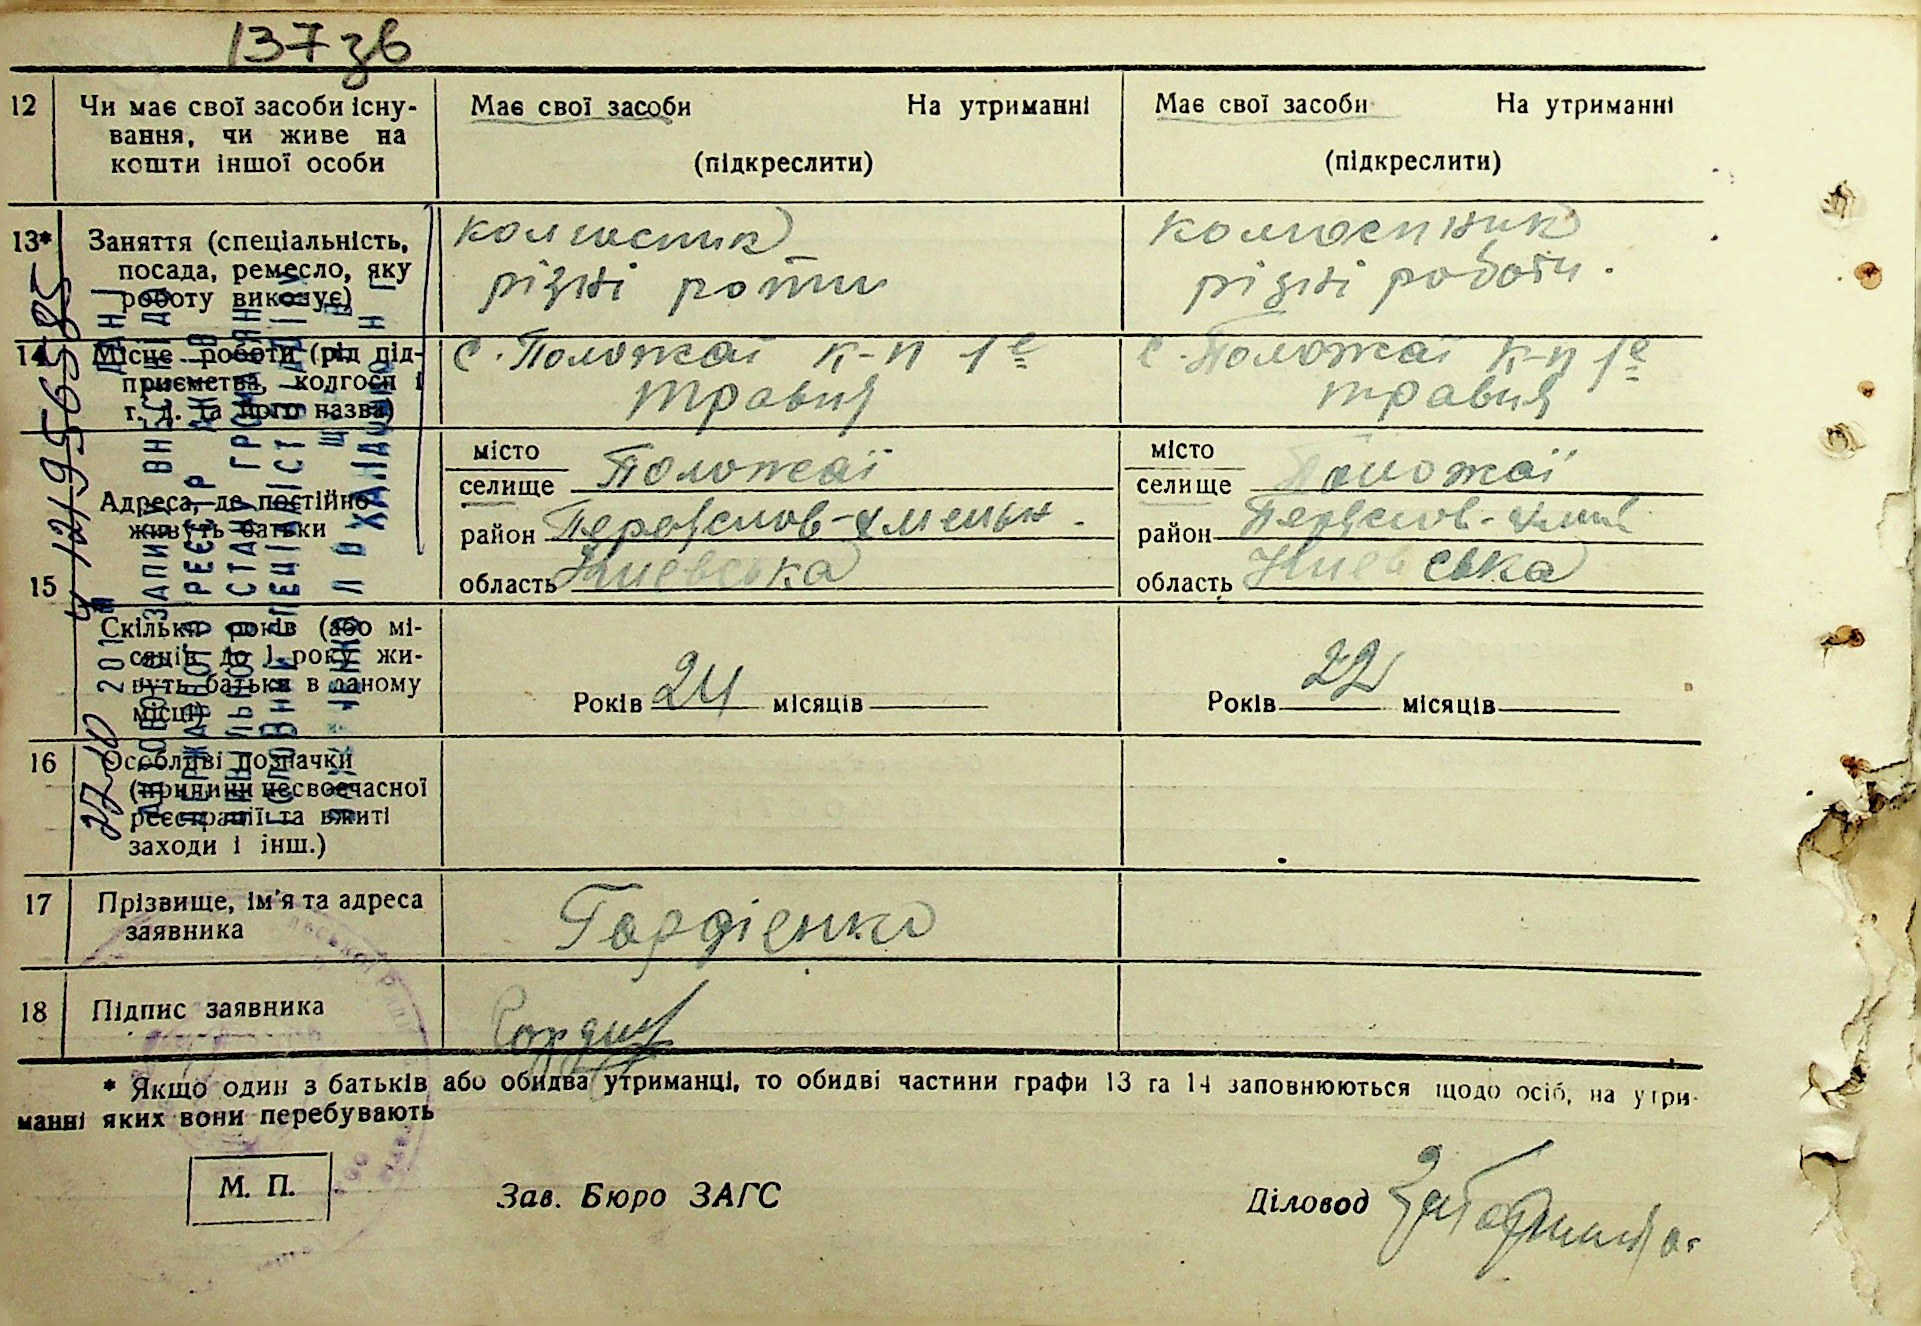 137 зв
12 Чи має свої засоби існу-
вання, чи живе на
кошти іншої особи
Має свої засоби На утриманні
(підкреслити)
Має свої засоби На утриманні
(підкреслити)
13* Заняття (спеціальність,
посада, ремесло, яку
роботу виконує)
колгоспник
різні роти
колгоспник
різні роботи.
14 Місце роботи (рід під-
приємства, колгосп і
т. д. та його назва)
с. Положаї к-п 1е
травня
с. Положаї к-п 1е
травня
15 Адреса, де постійно
живуть батьки
місто
селище Положаї
район
область Киевська
місто
селище Положаї
район
область Киевська
Скільки років (або мі-
сяців до 1 року жи-
вуть батьки в даному
місці)
Років 24 місяців
Років 22 місяців
16 Особливі позначки
(причини несвоєчасної
реєстрації та вжиті
заходи і інш.)
17 Прізвище, ім'я та адреса
заявника
Гордіенко
18 Підпис заявника
* Якщо один з батьків або обидва утриманці, то обидві частини графи 13 та 14 заповнюються щодо осіб, на утри-
манні яких вони перебувають
М. П.
Зав. Бюро ЗАГС
Діловод